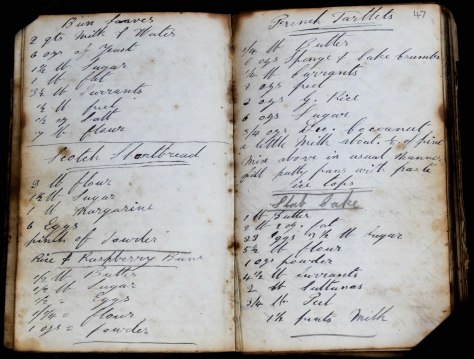 Bun Loaves
2 qts Milk & Water
6 ozs of Yeast
1½ lb Sugar
2 lb Fat
3½ lb Currants
½ lb peel
1½ oz Salt
7 lb flour
Scotch Shortbread
3 lb flour
1½ lb Sugar
1 lb Margarine
6 Eggs
pinch of powder
Rice & Raspberry Buns
½ lb Butter
lb Sugar
Eggs
flour
1 ozs = powder
French Tartlets
47
1/4 lb Butter
6 ozs Sponge & Cake Crumbs
1/4 lb Currants
2 ozs peel
2 ozs G. Rice
6 ozs Sugar
3/4 ozs Des. Cocoanut
a little Milk about ½ of pint
Mix above in usual Manner
fill patty pans with paste
Ice tops
Slab Cake
1 lb Butter
2 lb 2 oz fat
23 Eggs 3½ lb Sugar
5½ lb flour
1 ozs powder
4½ lb currants
2 lb Sultanas
3/4 lb Peel
1½ pints Milk